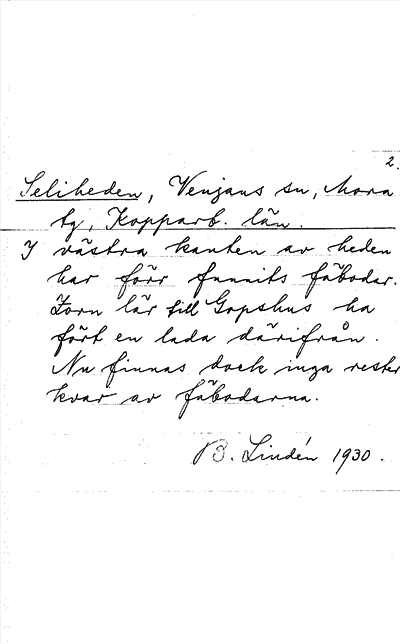 2.
Seliheden, Venjans sn, Mora
tg, Kopparb. län.
I västra kanten av heden
har förr funnits fäbodar.
Zorn lär till Gopshus ha
fört en lada därifrån.
Nu finnas dock inga rester
kvar av fäbodarna.
B. Lindén 1930.